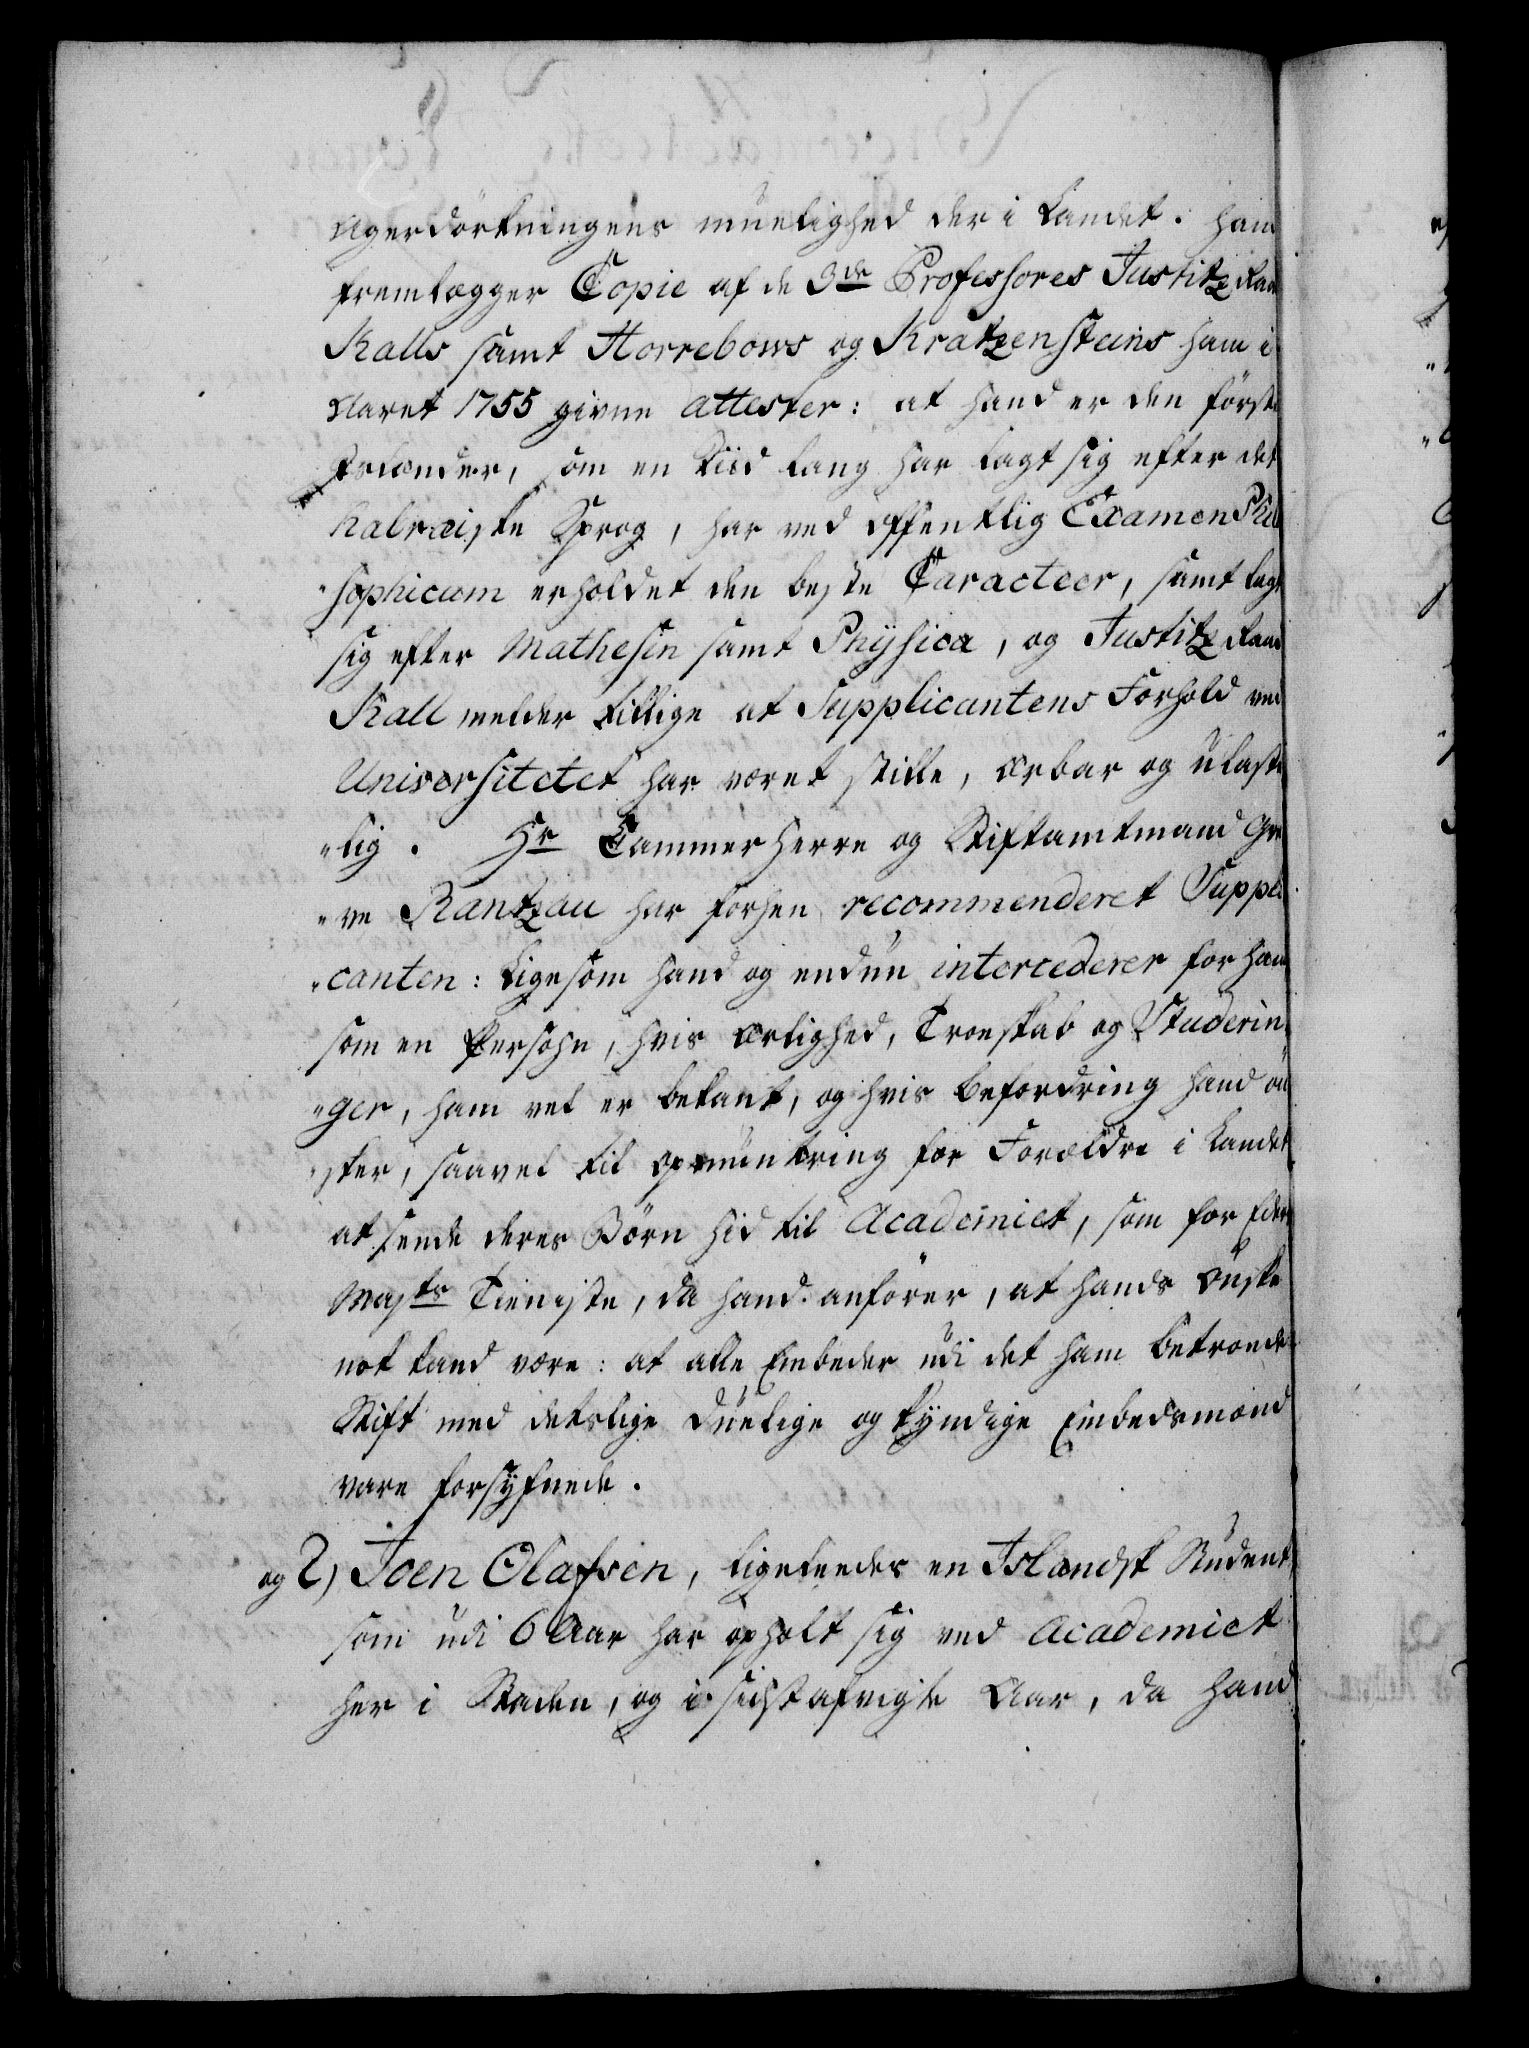 Agerdörkningens muelighed der i Landet. Hand
fremlægger Copie af de 3de Professores Justitz Raad
Kalls samt Horrebows og Kratzensteins ham i
Aaret 1755 givne attester: at hand er den förste
Islænder, som en Tiid lang har lagt sig efter det
hæbræiske Sprog, har ved offentlig Examen Philo
"sophicum erholdet den beste Caracteer, samt lagt
sig efter Mathesin samt Physica, og Justitz Raad
Kall melder tillige at Supplicantens Forhold ved
Universitetet har været stille, ærbar og ulaste
"lig. Hr Cammerherre og Stiftamtmand Gre
"ve Rantzau har forhen recommenderet Suppli
"canten: ligesom hand og endnu intercederer for ham
som en Persohn, hvis Ærlighed, Troeskab og Studerin
"ger, ham vel er bekant, og hvis befordring hand ön
"sker, saavel til opmuntring for Forældre i Landet
at sende deres Börn hid til Academiet, som for Eders
Mayts Tieniste, da hand anförer, at hands Önske
not kand være: at alle Embeder udi det ham betroede
Stift med deslige duelige og kyndige Embedsmænd
vare forsÿnede.
og 2) Joen Olafsen, ligeledes en Islandsk Student,
som udi 6 Aar har opholt sig ved Academiet
her i Staden, og i sidstafvigte Aar, da hand